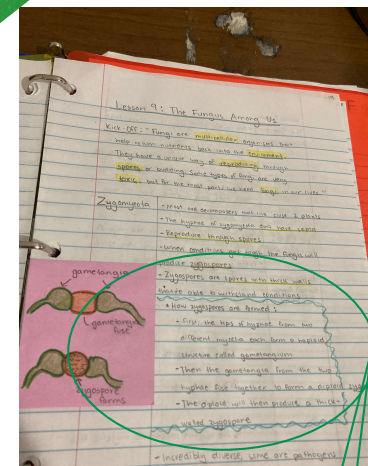 Lesson 9: The Fungus Among Us
Kick-Off: "Fungi are multicellular organisms that
help return nutrients back into the environment.
They have a unique way of reproducing through
spores or budding. Some types of fungi are very
toxic, but for the most part, we need fungi in our lives."
Zygomycota - Most are decomposers that live close 2 plants
- The hyphae of zygomycota don't have septa
- Reproduce through spores
- When conditions get rough the fungus will
produce zygospores
- Zygospores are spores with thick walls
able to withstand conditions
• How zygospores are formed:
- First, the tips of hyphae from two
different mycelia each form a haploid
structure called gametangium
- Then the gametangia from the two
hyphae fuse together to form a diploid
- The diploid will then produce a thick-
walled zygospore
- Incredibly diverse, some are pathogens
gametangia
gametangia
fuse
zygospore
forms